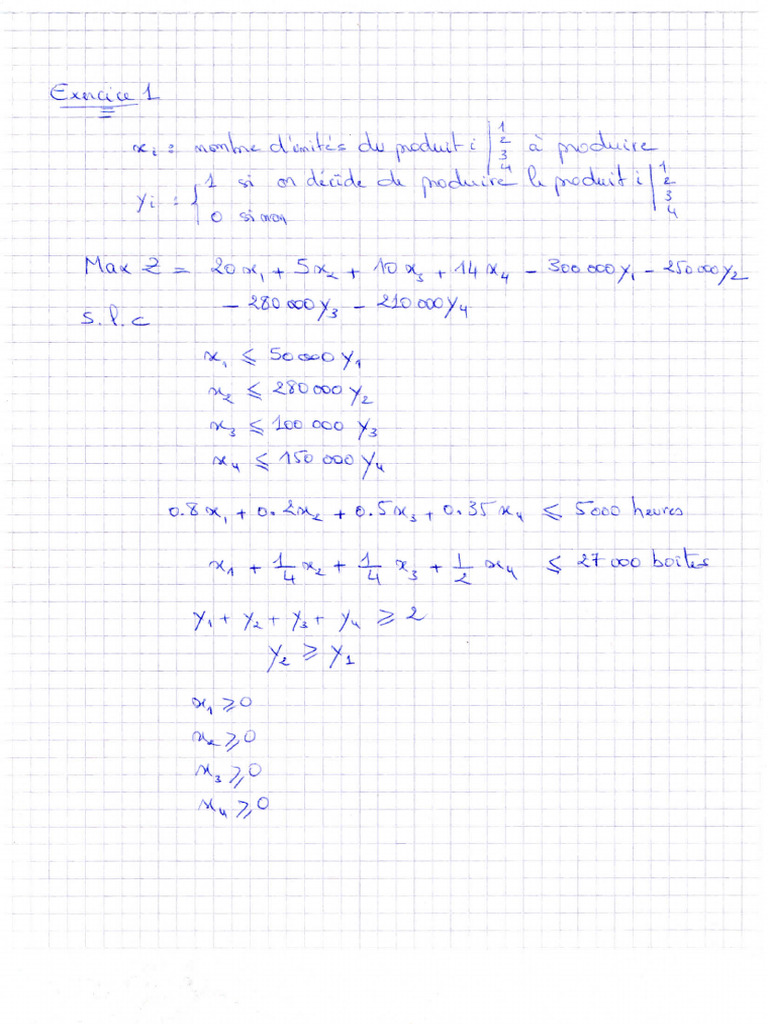 Exercice 1
xi : nombre d'unités du produit i | 1 2 3 4 à produire
yi : { 1 si on décide de produire le produit i | 1 2 3 4
0 sinon
Max Z = 20x₁ + 5x₂ + 10x₃ + 14x₄ - 300 000y₁ - 250 000y₂
- 280 000y₃ - 210 000y₄
s.l.c
x₁ ≤ 50 000 y₁
x₂ ≤ 280 000 y₂
x₃ ≤ 100 000 y₃
x₄ ≤ 150 000 y₄
0.8x₁ + 0.2x₂ + 0.5x₃ + 0.35x₄ ≤ 5000 heures
x₁ + 1/4 x₂ + 1/4 x₃ + 1/2 x₄ ≤ 27 000 boîtes
y₁ + y₂ + y₃ + y₄ ≥ 2
y₂ ≥ y₁
x₁ ≥ 0
x₂ ≥ 0
x₃ ≥ 0
x₄ ≥ 0